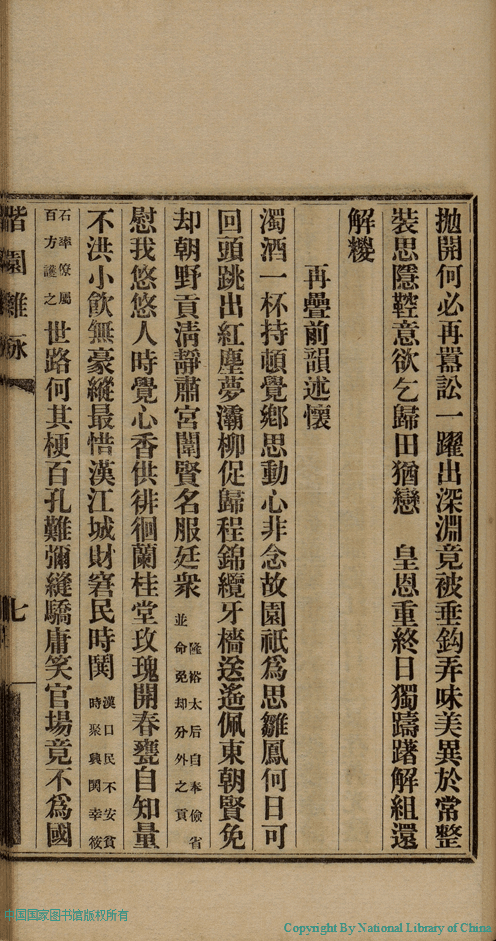 抛開何必再囂訟一躍出深淵竟被垂鈎弄味美異於常整
裝思隱鞚意欲乞歸田猶戀　皇恩重終日獨躊躇解組還
解糉
再疊前韻述懷
濁酒一杯持頓覺鄉思動心非念故園祇爲思雛鳳何日可
回頭跳出紅塵夢灞柳促歸程錦纜牙檣送遙佩東朝賢免
却朝野貢清靜肅宮闈賢名服廷衆
隆裕太后自奉儉省
並命免却分外之貢
慰我悠悠人時覺心香供徘徊蘭桂堂玫瑰開春甕自知量
不洪小飲無豪縱最惜漢江城財窘民時鬨
漢口民不安貧
時聚興鬨幸筱
石率僚屬
百方護之
世路何其梗百孔難彌縫驕庸笑官場竟不爲國
園雜詠
七
中国国家图书馆版权所有
Copyright By National Library of China